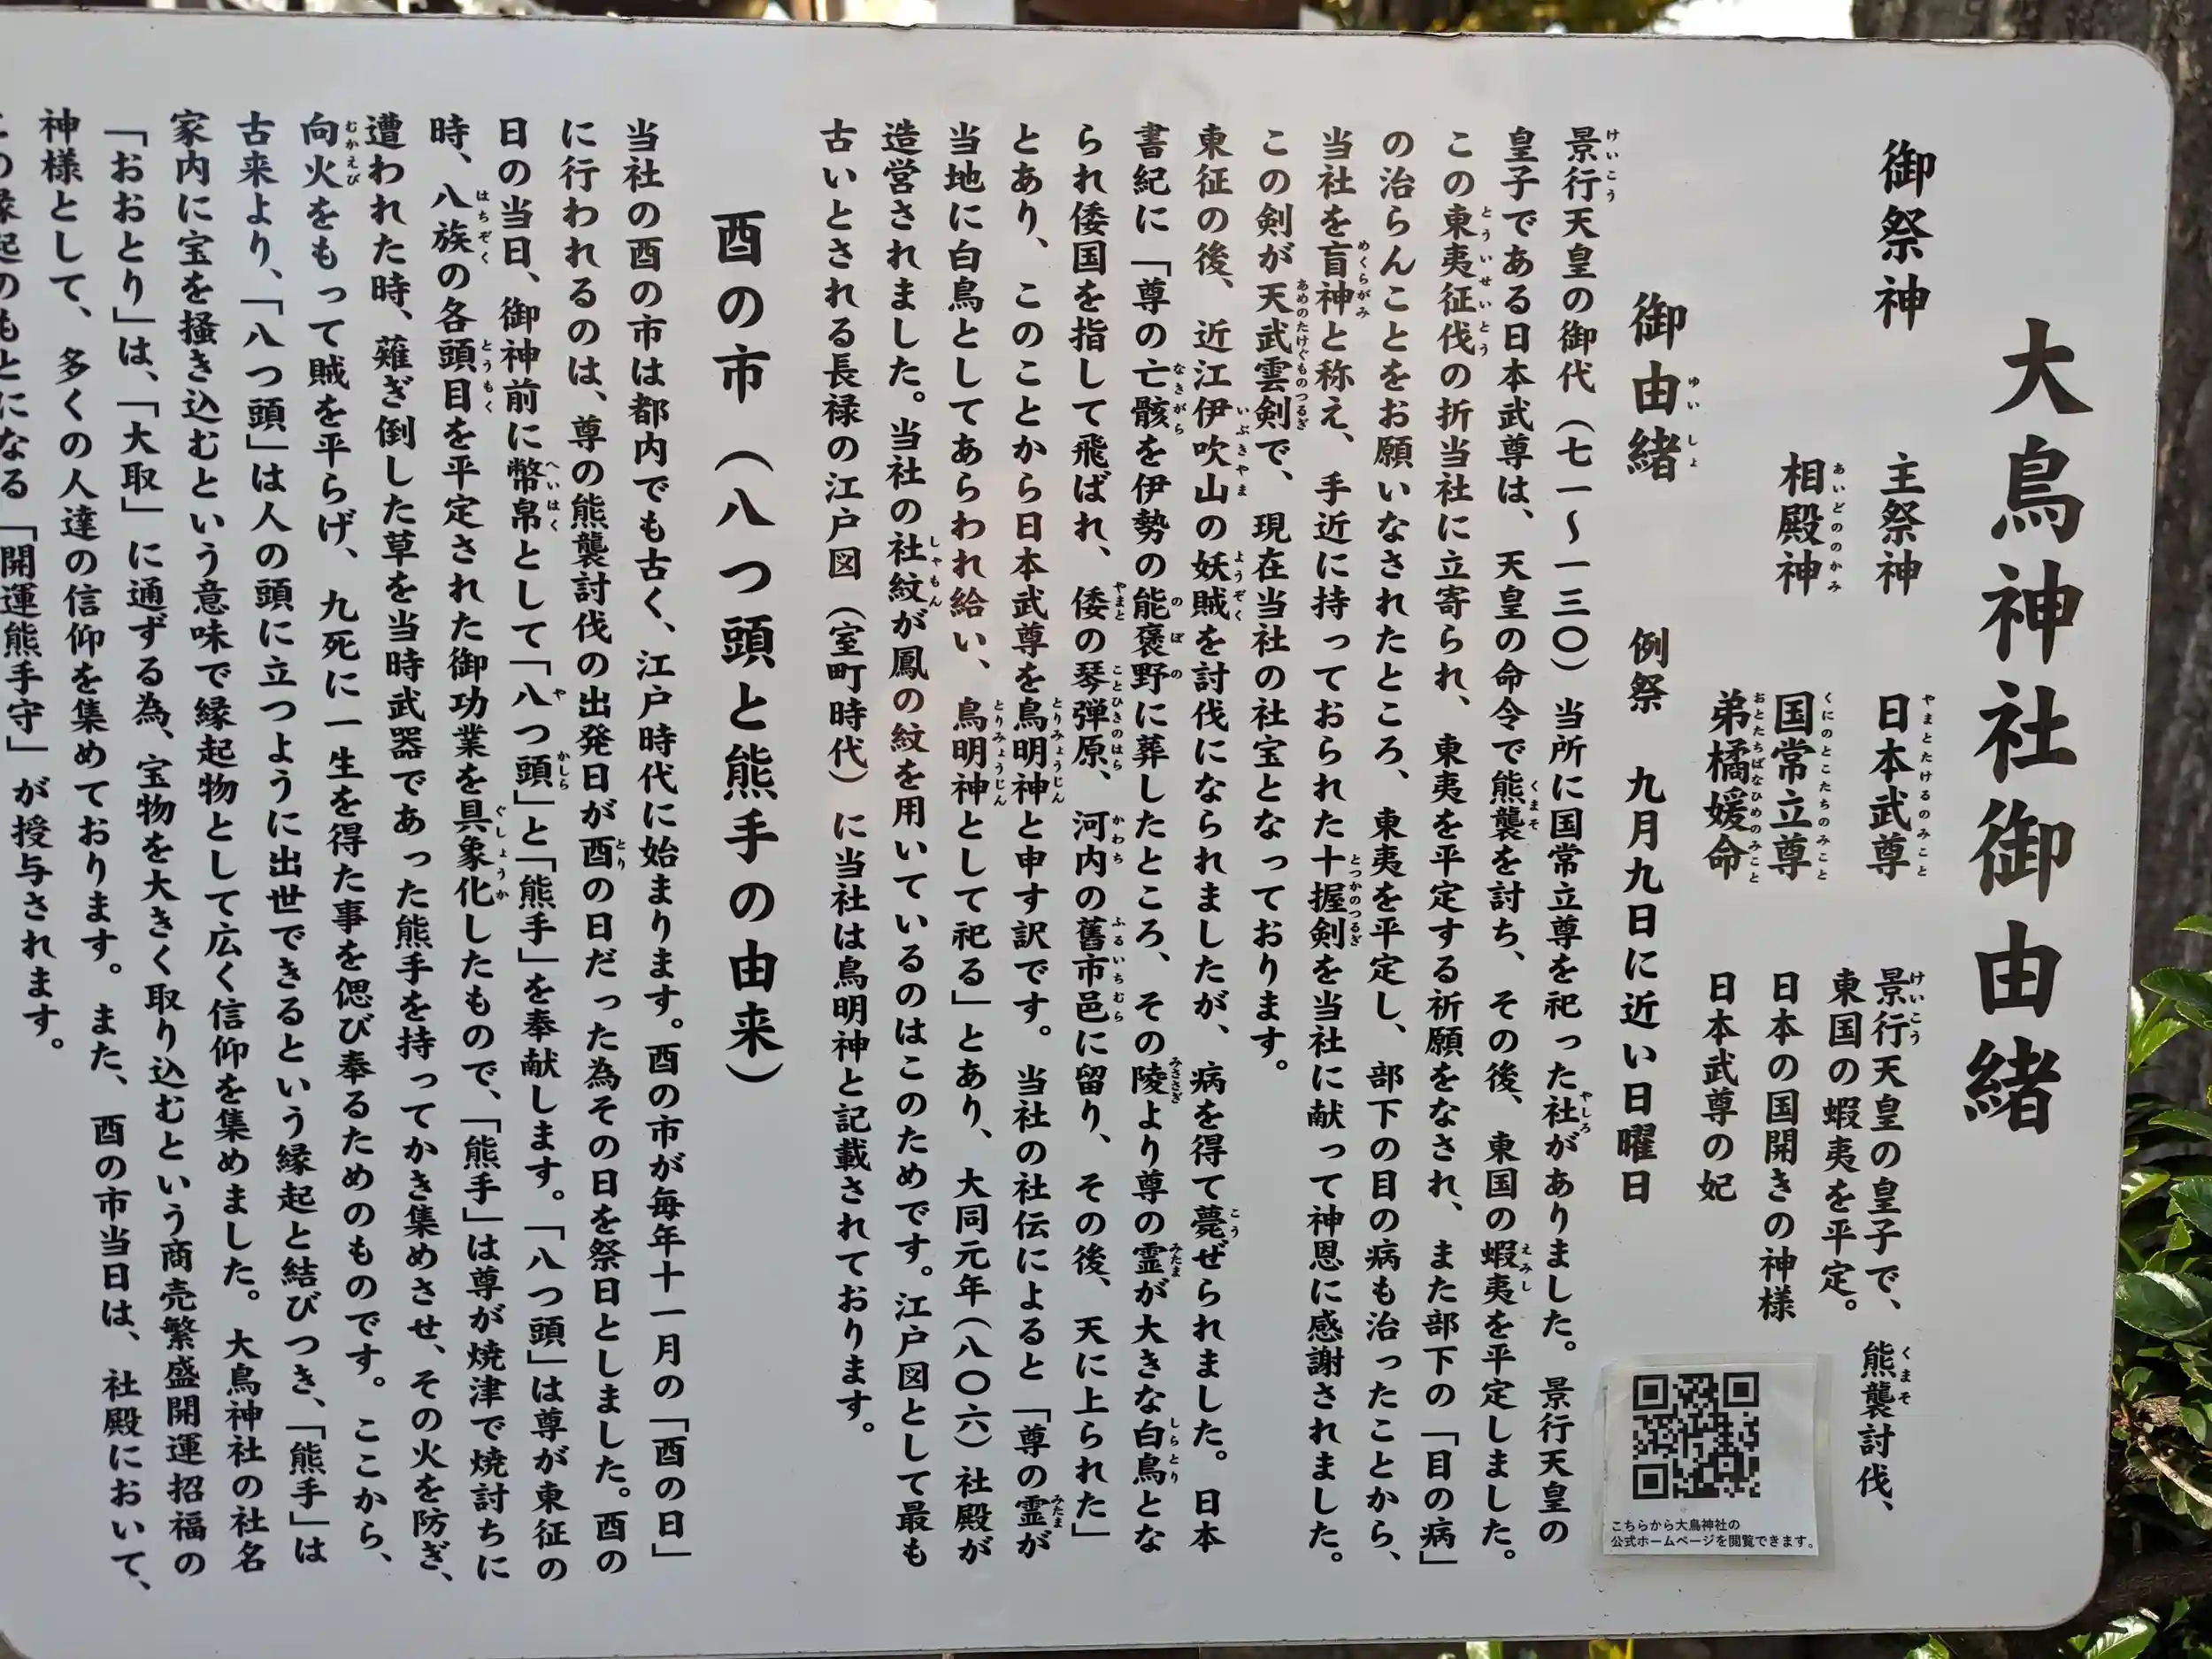 大鳥神社御由緒
御祭神　主祭神　日本武尊　景行天皇の皇子で、熊襲討伐、
東国の蝦夷を平定。
相殿神　国常立尊　日本の国開きの神様
弟橘媛命　日本武尊の妃
御由緒　例祭　九月九日に近い日曜日
景行天皇の御代（七一〜一三〇）当所に国常立尊を祀った社がありました。景行天皇の
皇子である日本武尊は、天皇の命令で熊襲を討ち、その後、東国の蝦夷を平定しました。
この東夷征伐の折当社に立寄られ、東夷を平定する祈願をなされ、また部下の「目の病」
の治らんことをお願いなされたところ、東夷を平定し、部下の目の病も治ったことから、
当社を盲神と称え、手近に持っておられた十握剣を当社に献って神恩に感謝されました。
この剣が天武雲剣で、現在当社の社宝となっております。
東征の後、近江伊吹山の妖賊を討伐になられましたが、病を得て薨ぜられました。日本
書紀に「尊の亡骸を伊勢の能褒野に葬したところ、その陵より尊の霊が大きな白鳥とな
られ倭国を指して飛ばれ、倭の琴弾原、河内の舊市邑に留り、その後、天に上られた」
とあり、このことから日本武尊を鳥明神と申す訳です。当社の社伝によると「尊の霊が
当地に白鳥としてあらわれ給い、鳥明神として祀る」とあり、大同元年（八〇六）社殿が
造営されました。当社の社紋が鳳の紋を用いているのはこのためです。江戸図として最も
古いとされる長禄の江戸図（室町時代）に当社は鳥明神と記載されております。
酉の市（八つ頭と熊手の由来）
当社の酉の市は都内でも古く、江戸時代に始まります。酉の市が毎年十一月の「酉の日」
に行われるのは、尊の熊襲討伐の出発日が酉の日だった為その日を祭日としました。酉の
日の当日、御神前に幣帛として「八つ頭」と「熊手」を奉献します。「八つ頭」は尊が東征の
時、八族の各頭目を平定された御功業を具象化したもので、「熊手」は尊が焼津で焼討ちに
遭われた時、薙ぎ倒した草を当時武器であった熊手を持ってかき集めさせ、その火を防ぎ、
向火をもって賊を平らげ、九死に一生を得た事を偲び奉るためのものです。ここから、
古来より、「八つ頭」は人の頭に立つように出世できるという縁起と結びつき、「熊手」は
家内に宝を掻き込むという意味で縁起物として広く信仰を集めました。大鳥神社の社名
「おおとり」は、「大取」に通ずる為、宝物を大きく取り込むという商売繁盛開運招福の
神様として、多くの人達の信仰を集めております。また、酉の市当日は、社殿において、
この縁起のもとになる「開運熊手守」が授与されます。
こちらから大鳥神社の
公式ホームページを閲覧できます。